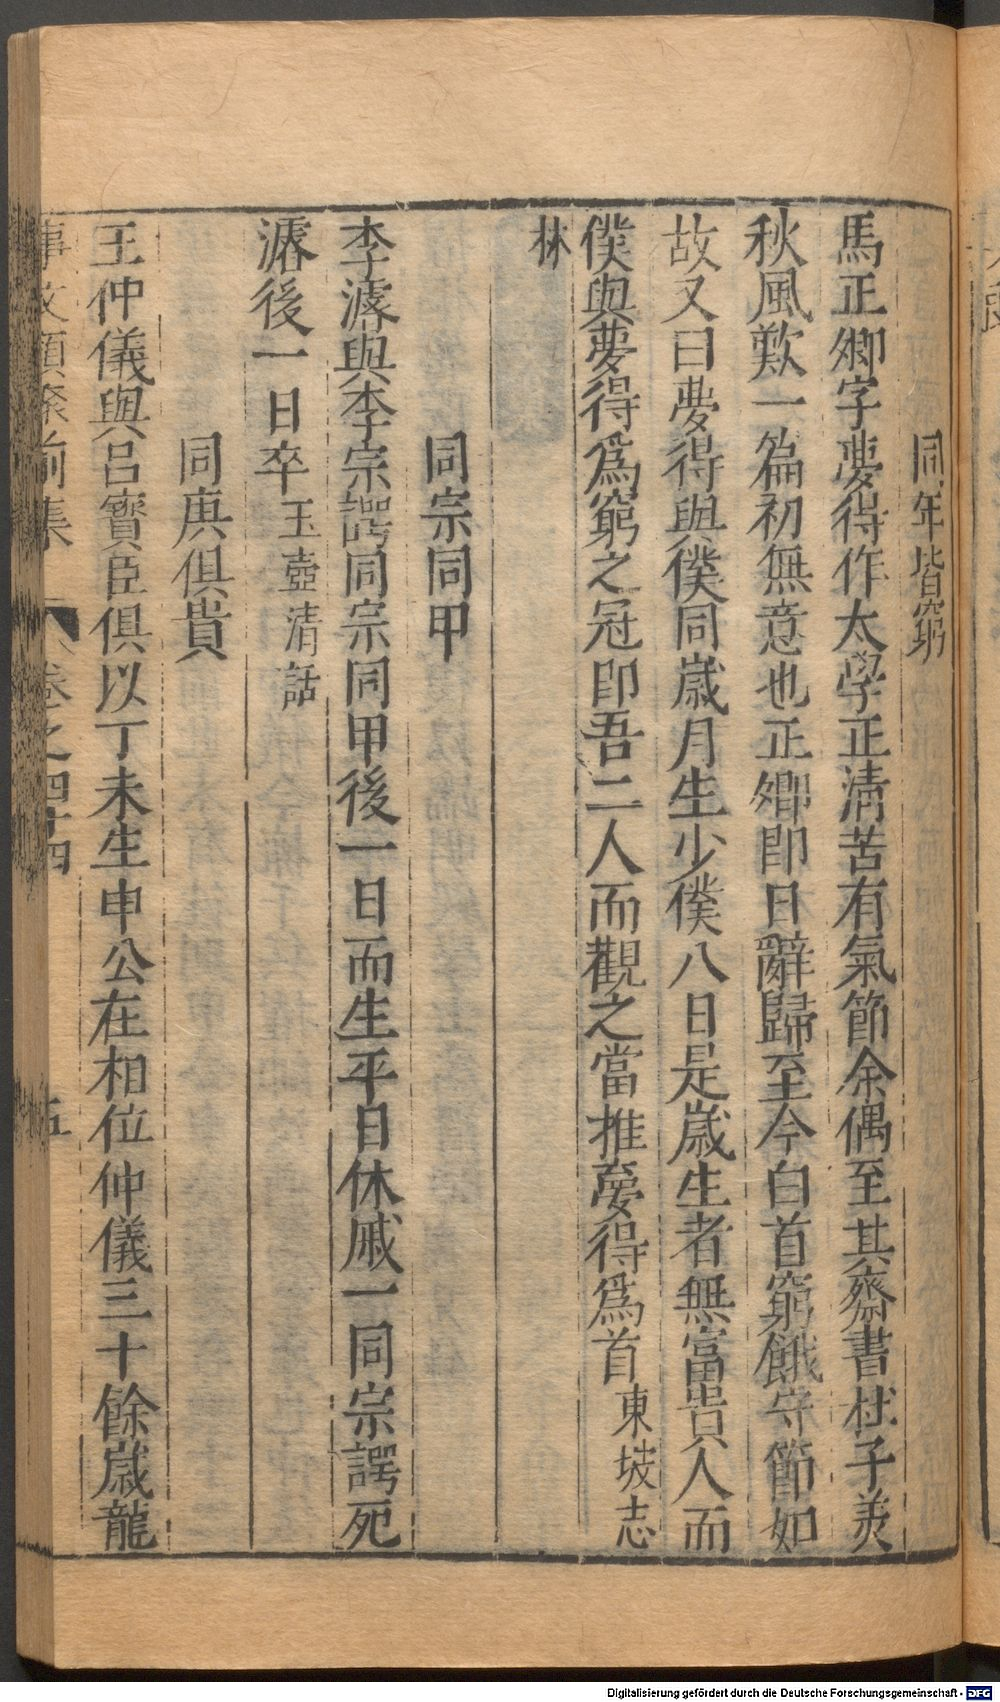 同年皆窮
馬正卿字夢得作太學正清苦有氣節余偶至其齋書杜子美
秋風歎一篇初無意也正卿即日辭歸至今白首窮餓守節如
故又曰夢得與僕同歲月生少僕八日是歲生者無富貴人而
僕與夢得爲窮之冠即吾二人而觀之當推夢得爲首東坡志
林
同宗同甲
李濬與李宗諤同宗同甲後一日而生平日休戚一同宗諤死
濬後一日卒玉壺清話
同庚俱貴
王仲儀與呂寶臣俱以丁未生申公在相位仲儀三十餘歲龍
事文類聚前集 卷之四十四 五
Digitalisierung gefördert durch die Deutsche Forschungsgemeinschaft - DFG